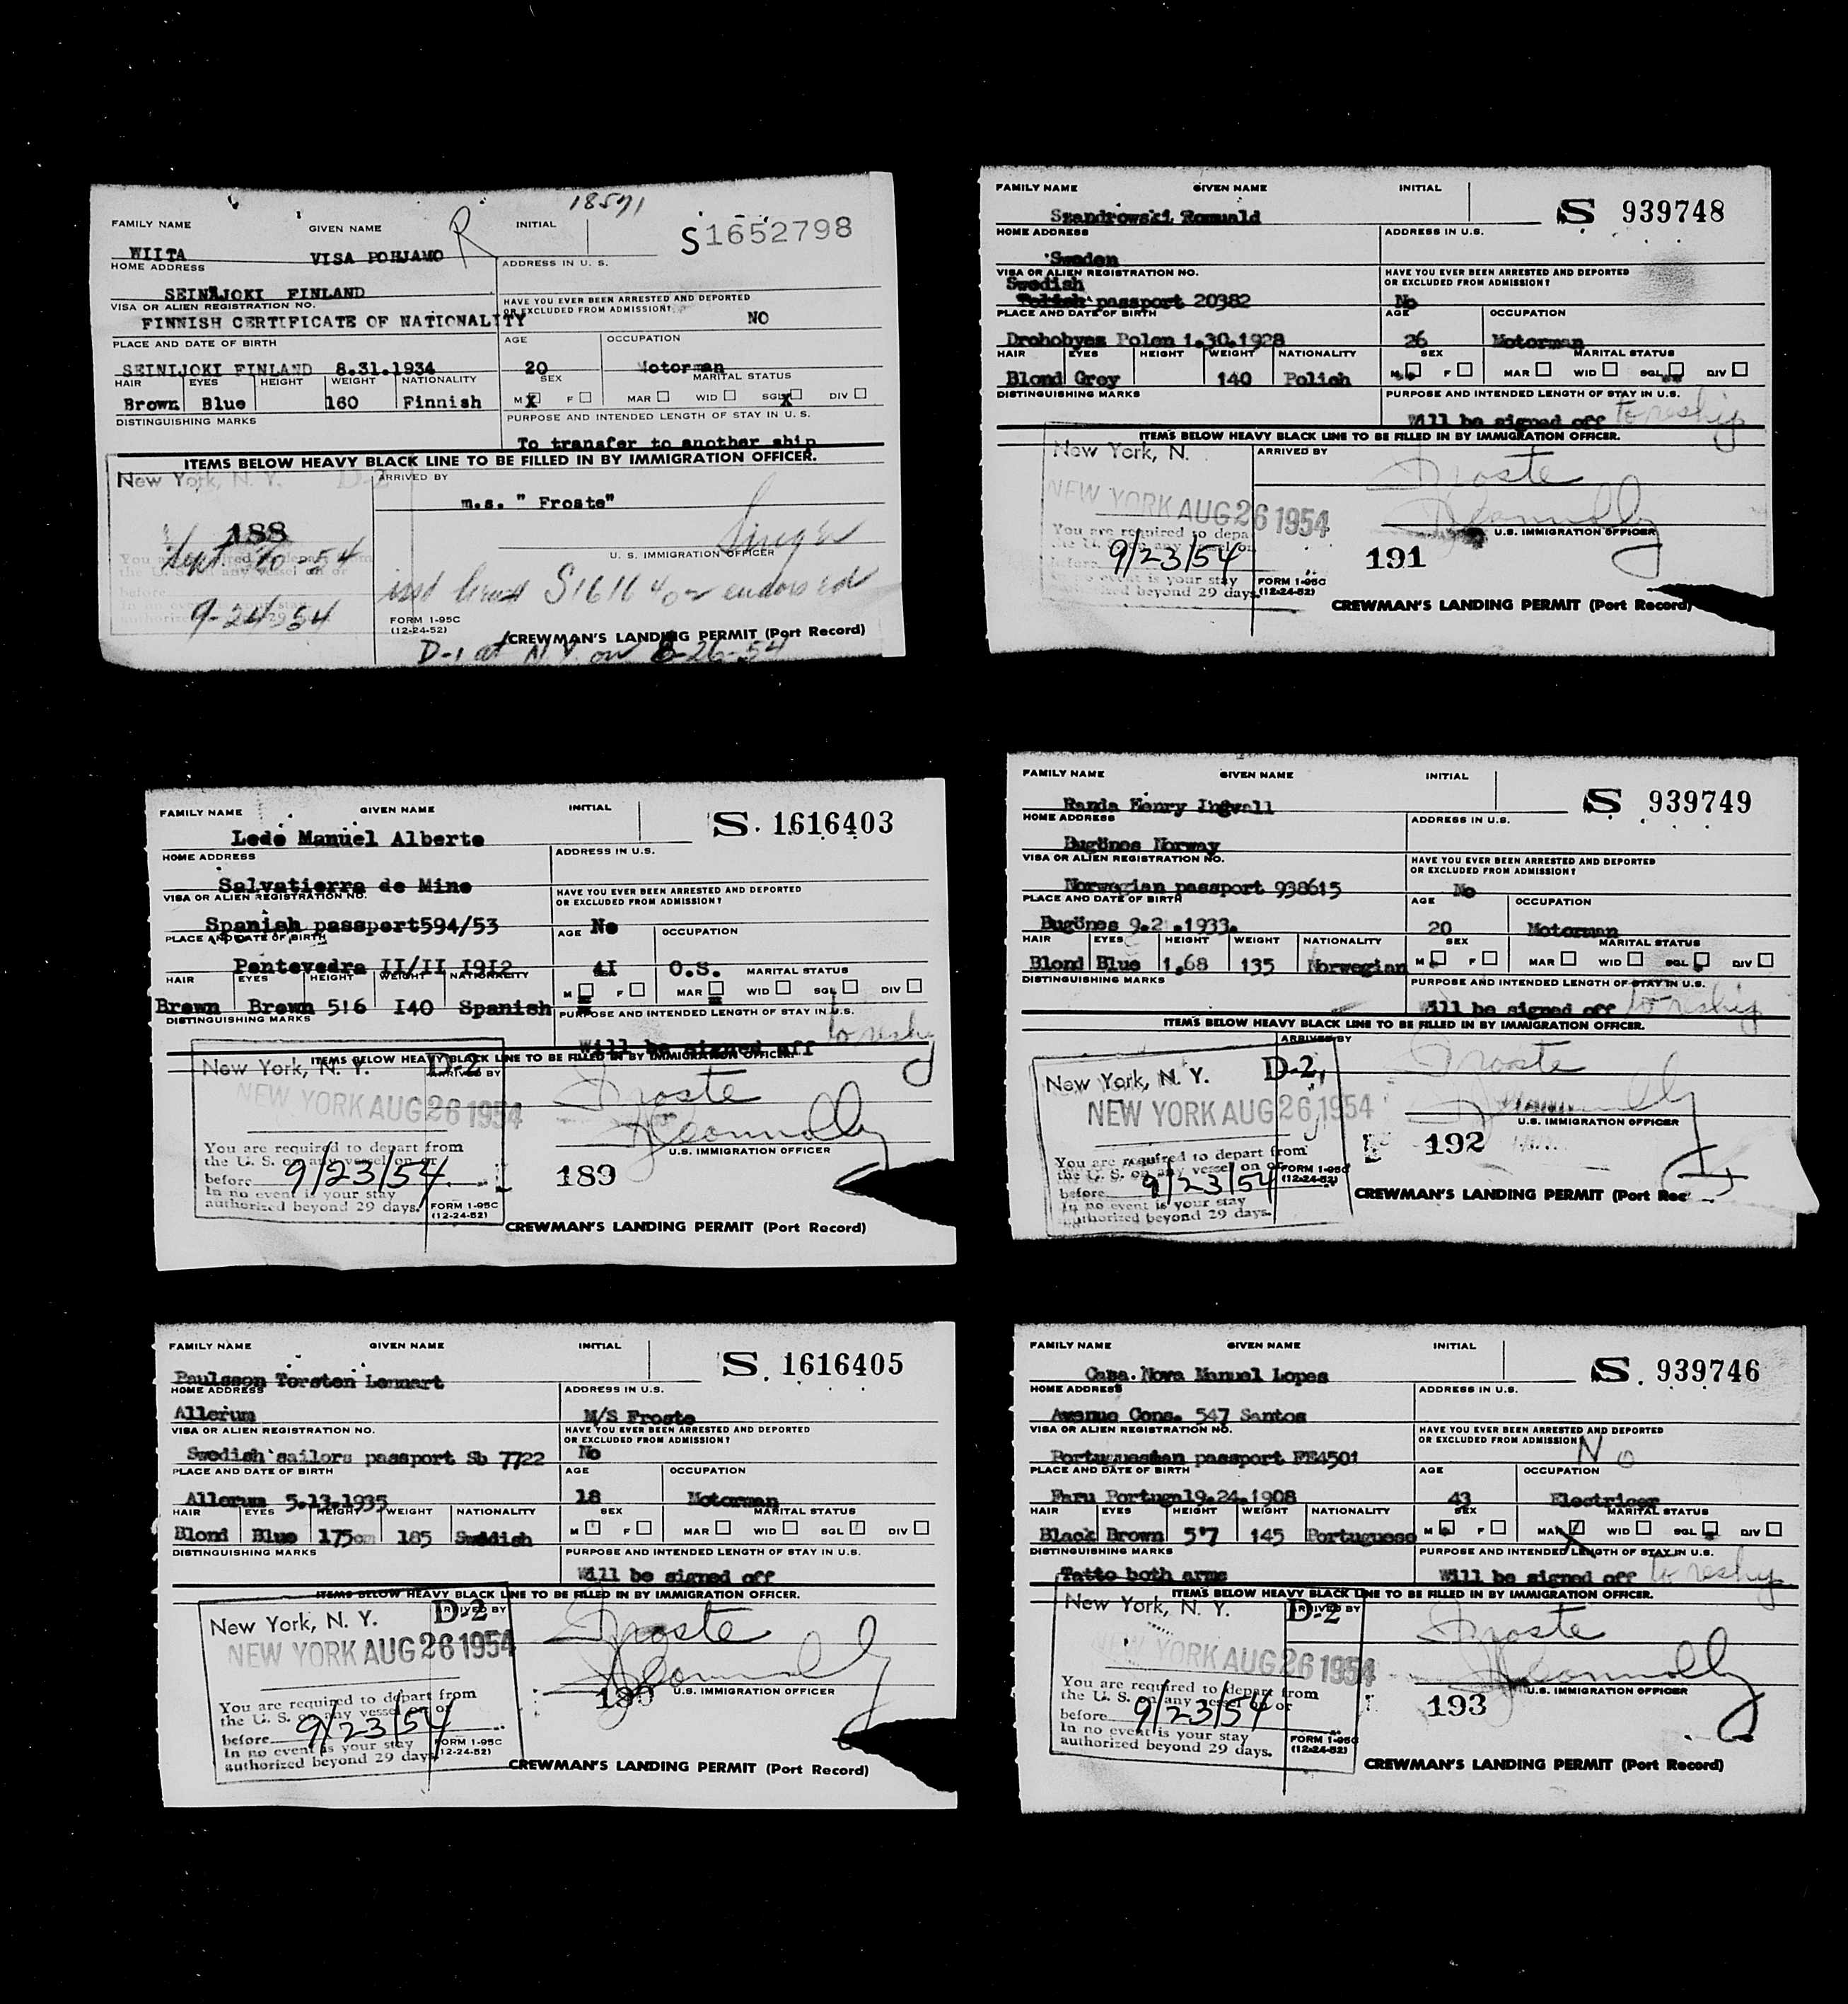 18591
FAMILY NAME GIVEN NAME R INITIAL S1652798
WIITA VISA POHJAMO
HOME ADDRESS ADDRESS IN U. S.
SEINÄJOKI FINLAND
VISA OR ALIEN REGISTRATION NO. HAVE YOU EVER BEEN ARRESTED AND DEPORTED
OR EXCLUDED FROM ADMISSION?
FINNISH CERTIFICATE OF NATIONALITY NO
PLACE AND DATE OF BIRTH AGE OCCUPATION
SEINIJOKI FINLAND 8.31.1934 20 Motorman
HAIR EYES HEIGHT WEIGHT NATIONALITY SEX MARITAL STATUS
Brown Blue 160 Finnish M X F MAR WID SGL X DIV
DISTINGUISHING MARKS PURPOSE AND INTENDED LENGTH OF STAY IN U. S.
To transfer to another ship
ITEMS BELOW HEAVY BLACK LINE TO BE FILLED IN BY IMMIGRATION OFFICER.
New York, N. Y. D-2 ARRIVED BY
m.s. " Froste"
188
Sept. 20-54
U. S. IMMIGRATION OFFICER
9-24-54
FORM 1-95C
(12-24-52)
CREWMAN'S LANDING PERMIT (Port Record)
D-1 at N.Y. on 8-26-54
FAMILY NAME GIVEN NAME INITIAL S 939748
Szandrowski Romuald
HOME ADDRESS ADDRESS IN U.S.
Sweden
VISA OR ALIEN REGISTRATION NO. HAVE YOU EVER BEEN ARRESTED AND DEPORTED
OR EXCLUDED FROM ADMISSION?
Swedish
passport 20382 No
PLACE AND DATE OF BIRTH AGE OCCUPATION
Drohobyez Polen 1.30.1928 26 Motorman
HAIR EYES HEIGHT WEIGHT NATIONALITY SEX MARITAL STATUS
Blond Grey 140 Polish M F MAR WID SGL DIV
DISTINGUISHING MARKS PURPOSE AND INTENDED LENGTH OF STAY IN U.S.
Will be signed off to reship
ITEMS BELOW HEAVY BLACK LINE TO BE FILLED IN BY IMMIGRATION OFFICER.
New York, N. ARRIVED BY
Froste
NEW YORK AUG 26 1954
Connolly
U.S. IMMIGRATION OFFICER
You are required to depa
9/23/54
191
before
no event is your stay
beyond 29 days.
FORM 1-95C
(12-24-52)
CREWMAN'S LANDING PERMIT (Port Record)
FAMILY NAME GIVEN NAME INITIAL S. 1616403
Ledo Manuel Alberto
HOME ADDRESS ADDRESS IN U.S.
Salvatierra de Mino
VISA OR ALIEN REGISTRATION NO. HAVE YOU EVER BEEN ARRESTED AND DEPORTED
OR EXCLUDED FROM ADMISSION?
Spanish passport594/53 No
PLACE AND DATE OF BIRTH AGE OCCUPATION
Pontevedra II/II I9I2 4I O.S.
HAIR EYES HEIGHT WEIGHT NATIONALITY SEX MARITAL STATUS
Brown Brown 5!6 I40 Spanish M F MAR WID SGL DIV
DISTINGUISHING MARKS PURPOSE AND INTENDED LENGTH OF STAY IN U.S.
Will be signed off to reship
ITEMS BELOW HEAVY BLACK LINE TO BE FILLED IN BY IMMIGRATION OFFICER.
New York, N. Y. D-2 ARRIVED BY
Froste
NEW YORK AUG 26 1954
Connolly
U.S. IMMIGRATION OFFICER
You are required to depart from
the U. S. on any vessel on or
before 9/23/54
189
In no event is your stay
authorized beyond 29 days.
FORM 1-95C
(12-24-52)
CREWMAN'S LANDING PERMIT (Port Record)
FAMILY NAME GIVEN NAME INITIAL S 939749
Randa Henry Ingvall
HOME ADDRESS ADDRESS IN U.S.
Bugönes Norway
VISA OR ALIEN REGISTRATION NO. HAVE YOU EVER BEEN ARRESTED AND DEPORTED
OR EXCLUDED FROM ADMISSION?
Norwegian passport 938615 No
PLACE AND DATE OF BIRTH AGE OCCUPATION
Bugönes 9.2 .1933. 20 Motorman
HAIR EYES HEIGHT WEIGHT NATIONALITY SEX MARITAL STATUS
Blond Blue 1,68 135 Norwegian M F MAR WID SGL DIV
DISTINGUISHING MARKS PURPOSE AND INTENDED LENGTH OF STAY IN U.S.
Will be signed off to reship
ITEMS BELOW HEAVY BLACK LINE TO BE FILLED IN BY IMMIGRATION OFFICER.
New York, N. Y. D-2, ARRIVED BY
Froste
NEW YORK AUG 26 1954
U.S. IMMIGRATION OFFICER
192
You are required to depart from
the U. S. on any vessel on or
before 9/23/54
In no event is your stay
authorized beyond 29 days.
FORM 1-95C
(12-24-52)
CREWMAN'S LANDING PERMIT (Port Rec
FAMILY NAME GIVEN NAME INITIAL S. 1616405
Paulsson Torsten Lennart
HOME ADDRESS ADDRESS IN U.S.
Allerum M/S Froste
VISA OR ALIEN REGISTRATION NO. HAVE YOU EVER BEEN ARRESTED AND DEPORTED
OR EXCLUDED FROM ADMISSION?
Swedish sailors passport Sb 7722 No
PLACE AND DATE OF BIRTH AGE OCCUPATION
Allerum 5.13.1935 18 Motorman
HAIR EYES HEIGHT WEIGHT NATIONALITY SEX MARITAL STATUS
Blond Blue 175cm 185 Swedish M F MAR WID SGL DIV
DISTINGUISHING MARKS PURPOSE AND INTENDED LENGTH OF STAY IN U.S.
Will be signed off
ITEMS BELOW HEAVY BLACK LINE TO BE FILLED IN BY IMMIGRATION OFFICER.
New York, N. Y. D-2 ARRIVED BY
Froste
NEW YORK AUG 26 1954
Connolly
U.S. IMMIGRATION OFFICER
You are required to depart from
the U. S. on any vessel on or
before 9/23/54
In no event is your stay
authorized beyond 29 days
FORM 1-95C
(12-24-52)
CREWMAN'S LANDING PERMIT (Port Record)
FAMILY NAME GIVEN NAME INITIAL S. 939746
Casa.Nova Manuel Lopes
HOME ADDRESS ADDRESS IN U.S.
Avenue Cons. 547 Santos
VISA OR ALIEN REGISTRATION NO. HAVE YOU EVER BEEN ARRESTED AND DEPORTED
OR EXCLUDED FROM ADMISSION No
passport FE4501
PLACE AND DATE OF BIRTH AGE OCCUPATION
Faru Portugal9.24.1908 43 Electricer
HAIR EYES HEIGHT WEIGHT NATIONALITY SEX MARITAL STATUS
Black Brown 5'7 145 Portuguese M F MAR WID SGL DIV
DISTINGUISHING MARKS PURPOSE AND INTENDED LENGTH OF STAY IN U.S.
Tatto both arms Will be signed off to reship
ITEMS BELOW HEAVY BLACK LINE TO BE FILLED IN BY IMMIGRATION OFFICER.
New York, N. Y. D-2 ARRIVED BY
Froste
NEW YORK AUG 26 1954
Connolly
U.S. IMMIGRATION OFFICER
You are required to depart from
the U. S. on any vessel on or
before 9/23/54
193
In no event is your stay
authorized beyond 29 days.
FORM 1-95C
(12-24-52)
CREWMAN'S LANDING PERMIT (Port Record)